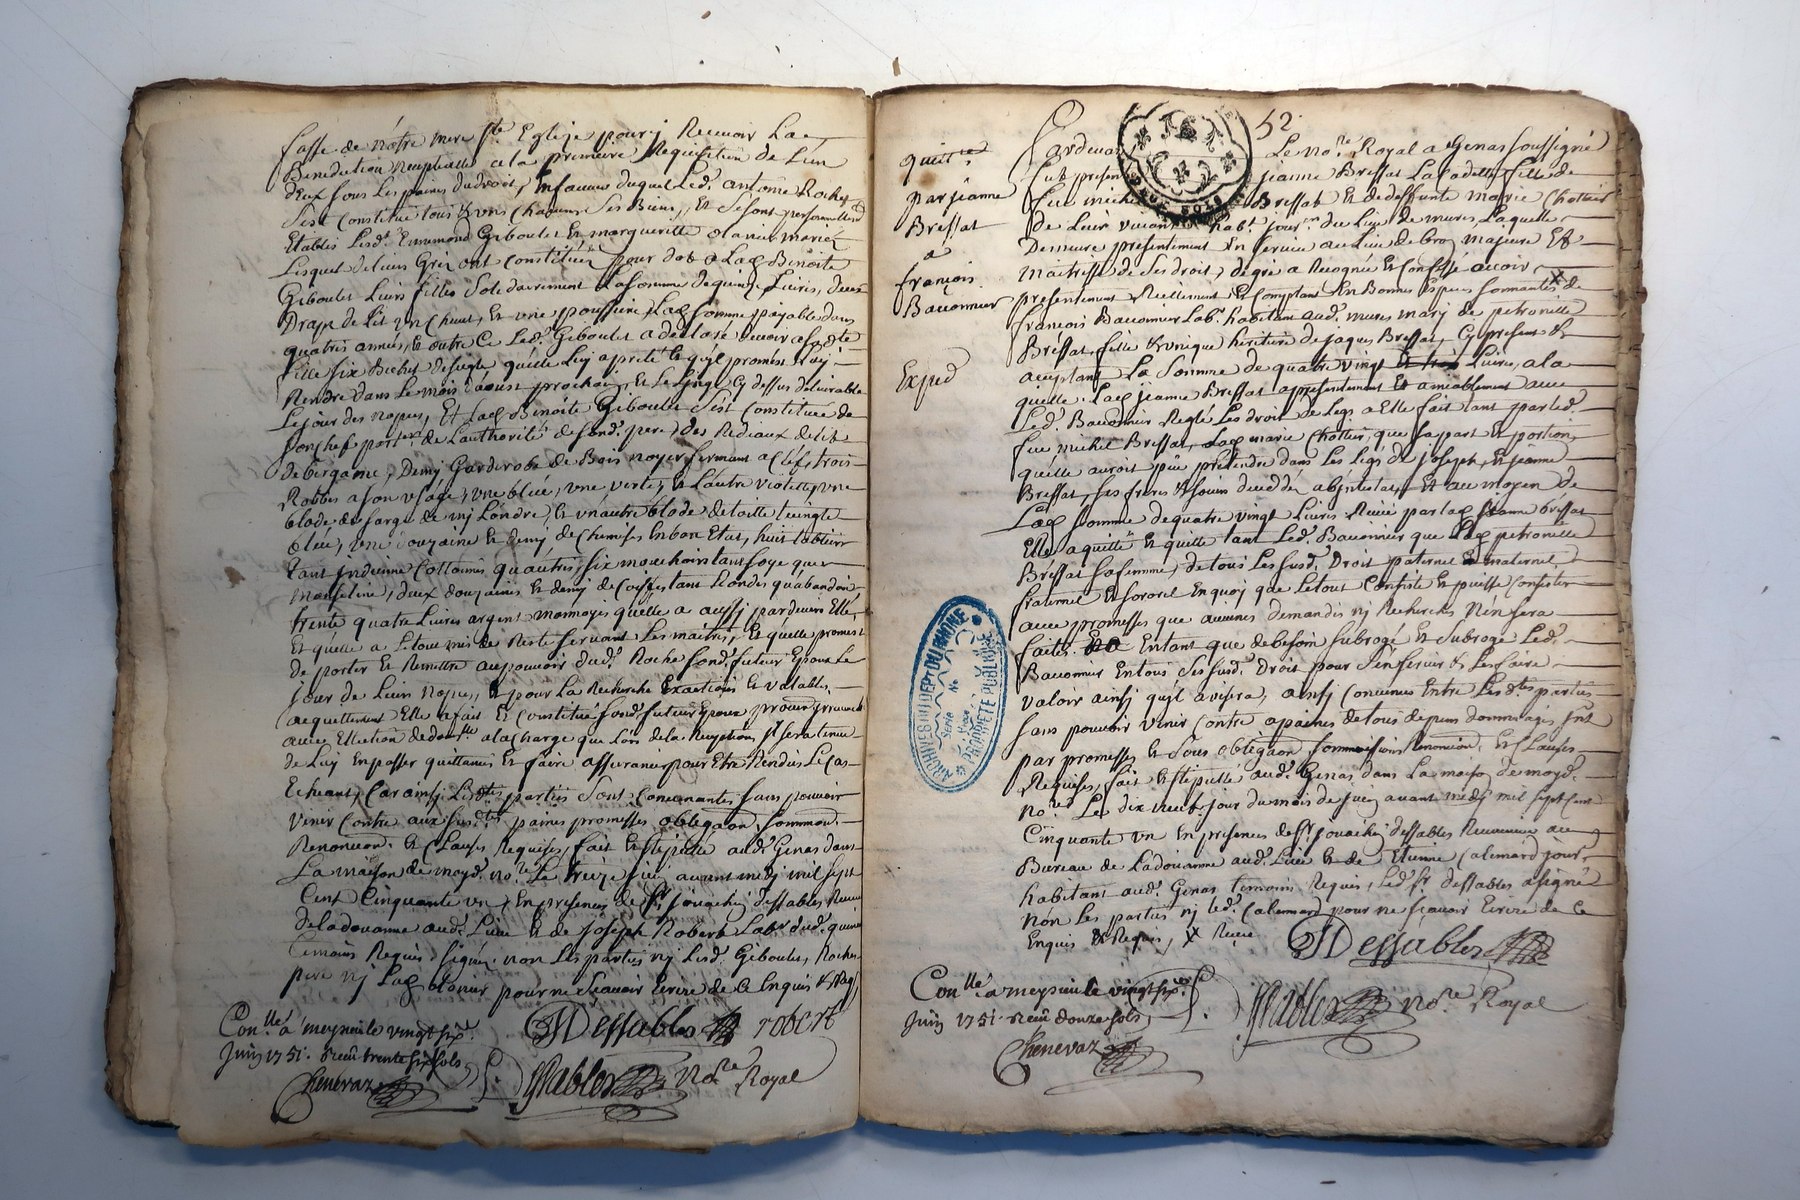 fasse de nôtre mere s.te Eglize pour j Recevoir La
Benediction Nuptialle a la premiere Requisition de L'un
d'Eux sous Les peines du droit, En faveur duquel Led. antoine Roches
s'est Constitué tous & uns chacuns Ses Biens, Et Se sont personnellem.t
Etablis Lesd. Ennemond Giboulet Et margueritte olanier mariés
Lesquels de Leurs Grés ont Constitués pour dot a Lad. Benoite
Giboulet Leurs filles Solidairement La somme de quinze Livres, deux
Draps de Lit un Cheut, Et une poussiere Lad. somme payable dans
quatres années, Et outre Ce Led. Giboulet a declaré devoir a Sadite
fille six Bichet de seigle qu'elle Luy a preté Et qu'il promis Luy
Rendre dans Le mois d'aoust prochain, Et Le Linge Cy dessus delivrable
Le jour des nopces, Et Lad. Benoite Giboulet s'est Constituée de
son chef part. de L'authorité de sond. pere, des Rediaux de lit
de Bergame, Demy Garderobe de Bois noyer fermant a Clef, trois
Robbes a son usage, une bleüe, une verte, Et L'autre viollette, une
blode de sarge de Londre, Et un autre blode de toille teingte
bleüe, une douzaine Et demy de Chemises En bon Etat, huit tabliers
tant Indienne Cottonnes qu'autres, six mouchoirs tant soye que
mouseline, deux douzaines Et demy de Coiffes tant Rondes qu'abandon
trente quatre Livres argent monnoyes qu'elle a aussy pardevers Elle,
Et qu'elle a Le tou mis de Reste servant Les maitres, Et quelle promest
de porter Et Remettre au pouvoir dud. Roche sond. futeur Epoux Le
jour de Leurs nopces, Et pour La Recherche Exactions Et valables
acquittement Elle a fait Et Constitué sond. futeur Epoux procureur
avec Ellection de dom.lle a la Charge que Lors de La Reception, Il sera tenu
de Luy En passer quittances Et faire assurance pour Etre Rendües Le Cas
Echeant, Car ainsy Lesd.tes parties Sont Convenantes sans pouvoir
venir Contre aux susd.tes paines promesses obligaon sommiss.
Renoncon. Et Clauses Requises, fait Et stipullé aud. Genas dans
La maison de moyd. no.re Le treize juin avant midy mil sept
Cent Cinquante un En presences de S.r jouachin dessables Receveur
de la doüanne aud. Lieu Et de joseph Robert Lab.r dud.
temoins Requis signés. non Les parties nj Lesd. Giboulet, Roches
pere nj Lad. olanier pour ne sçavoir Ecrire de Ce Enquis & Req.
JDessables robert
Con.llé a meysieu le vingt six
juin 1751. Reçu trente six sols
Chenevaz
Dessables no.re Royal
52
quitt.ce
par jeanne
Bressat
a
françois
Bavonnier
Exped
Pardevant Le no.re Royal a Genas soussigné
fut present jeanne Bressat La Cadette fille de
feu michel Bressat Et de deffunte marie Chollier
de Leur vivant hab.t jour.r du Lieu de mures, Laquelle
Demeure presentement En service au Lieu de bron majeure Et
maitresse de Ses droits, de gré a Recognu Et Confessé avoir X
presentement Réellement Et Comptant En Bonnes Especes sonnantes de
françois Bavonnier Lab.r habitant aud. mures mary de petronille
Bressat fille Et unique heritiere de jaques Bressat, Cy present Et
acceptant La Somme de quatre vingt Livres, a la
quelle Lad. jeanne Bressat a presentement Et amiablement avec
Led. Bavonnier Reglé Les droits de Legs a Elle fait tant par led.
feu michel Bressat, Lad. marie Chollier, que sa part Et portion
qu'elle auroit pûe pretendre dans Les Legs de joseph, Et jeanne
Bressat, ses freres & soeurs decedés abintestat, Et au moyen de
Lad. somme de quatre vingt Livres Reçüe par lad. jeanne bressat
Elle a quitté Et quitte tant Led. Bavonnier que Lad. petronille
Bressat sa femme, de tous Les susd. Droit paternel Et maternel
fraternel Et sororel En quoy que Le tout Consiste Et puisse Consister
avec promesses que aucunes demandes nj Recherches n'en sera
faites. Entant que de besoin subrogé Et Subroge Led.
Bavonnier En tous Ses susd. Droit pour s'en servir & Les faire
valoir ainsy qu'il avisera, ainsy Convenus Entre Lesd.tes parties
sans pouvoir venir Contre a paines de tous depens dommages jnt
par promesses Et sous obligaon sommissions Renoncion, Et Clauses
Requises, fait Et stipullé aud. Genas dans La maison de moyd.
no.re Le dix neuf jour du mois de juin avant midy mil sept Cent
Cinquante un En presences de S.r jouachin dessables Receveur au
Bureau de La doüanne aud. Lieu Et de Etienne Calemard jour.r
habitant aud. Genas temoins Requis, Led. S.r dessables a signé
non Les parties nj led. Calemard pour ne sçavoir Ecrire de Ce
Enquis & Requis, X Reçüe
JDessables
Con.llé a meysieu le vingt six
juin 1751. Reçu douze sols
Chenevaz
Dessables no.re Royal
ARCHIVES DU DEP.T DU RHONE
Serie
No
PROPRIETE PUBLIQUE